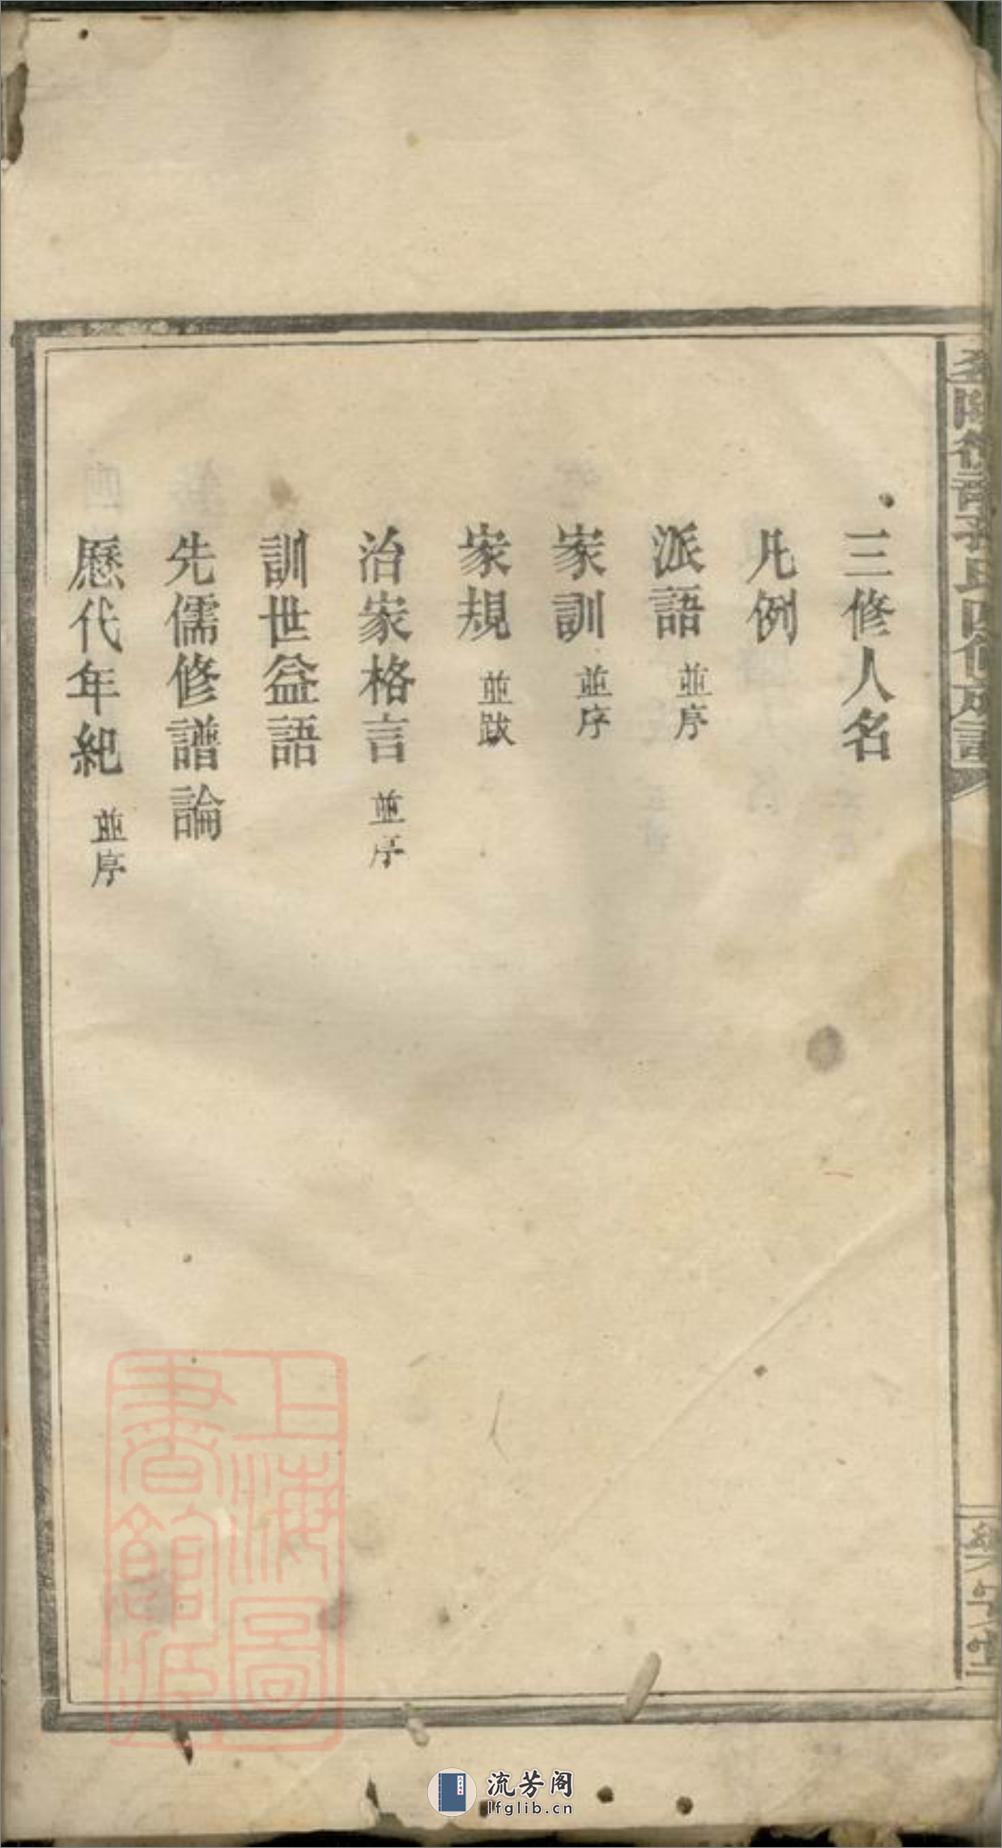 三修人名
凡例
派語 並序
家訓 並序
家規 並跋
治家格言 並序
訓世益語
先儒修譜論
歷代年紀 並序
上海圖書館藏
流芳阁
lfglib.cn